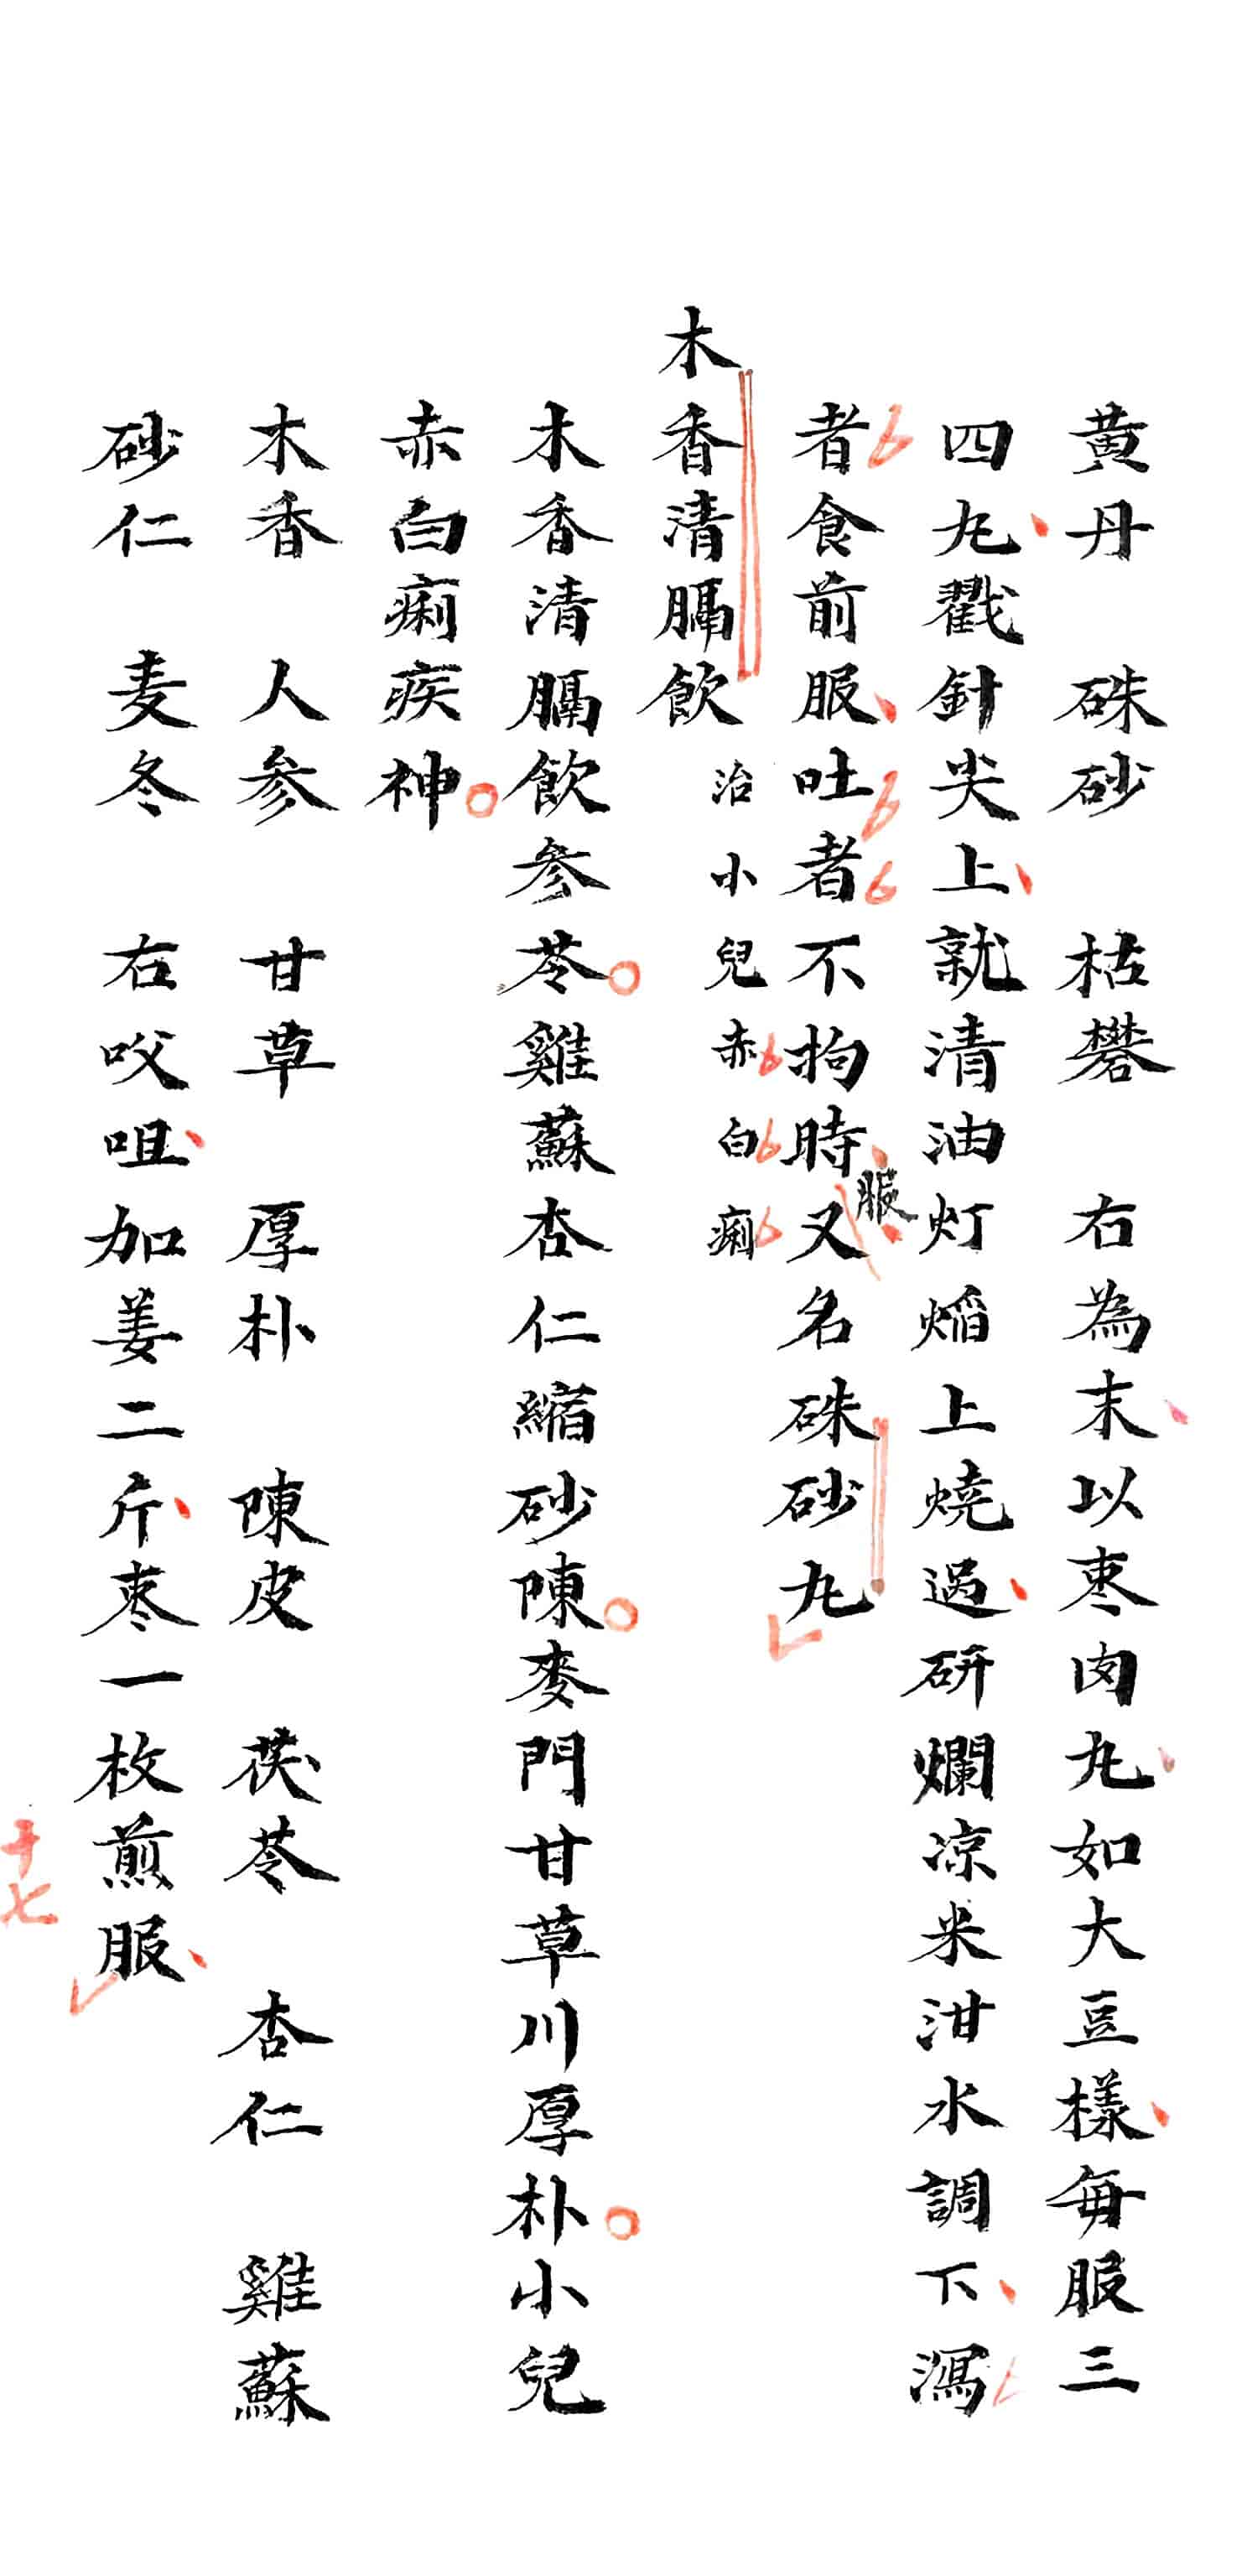 黄丹 硃砂 枯礬 右為末以枣肉丸如大豆樣每服三
四丸戳針尖上就清油灯焰上燒過研爛凉米泔水調下瀉
者食前服吐者不拘時服又名硃砂丸
木香清膈飲 治小兒赤白痢
木香清膈飲参苓雞蘇杏仁縮砂陳麥門甘草川厚朴小兒
赤白痢疾神
木香 人参 甘草 厚朴 陳皮 茯苓 杏仁 雞蘇
砂仁 麦冬 右咬咀加姜二斤枣一枚煎服
十七